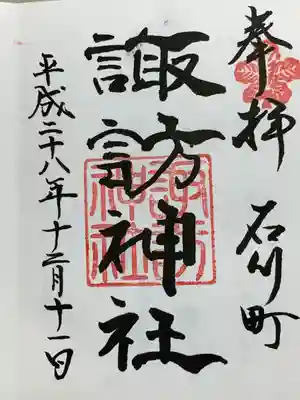 奉拝 石川町
諏訪神社
平成二十八年十二月十一日
諏訪
神社